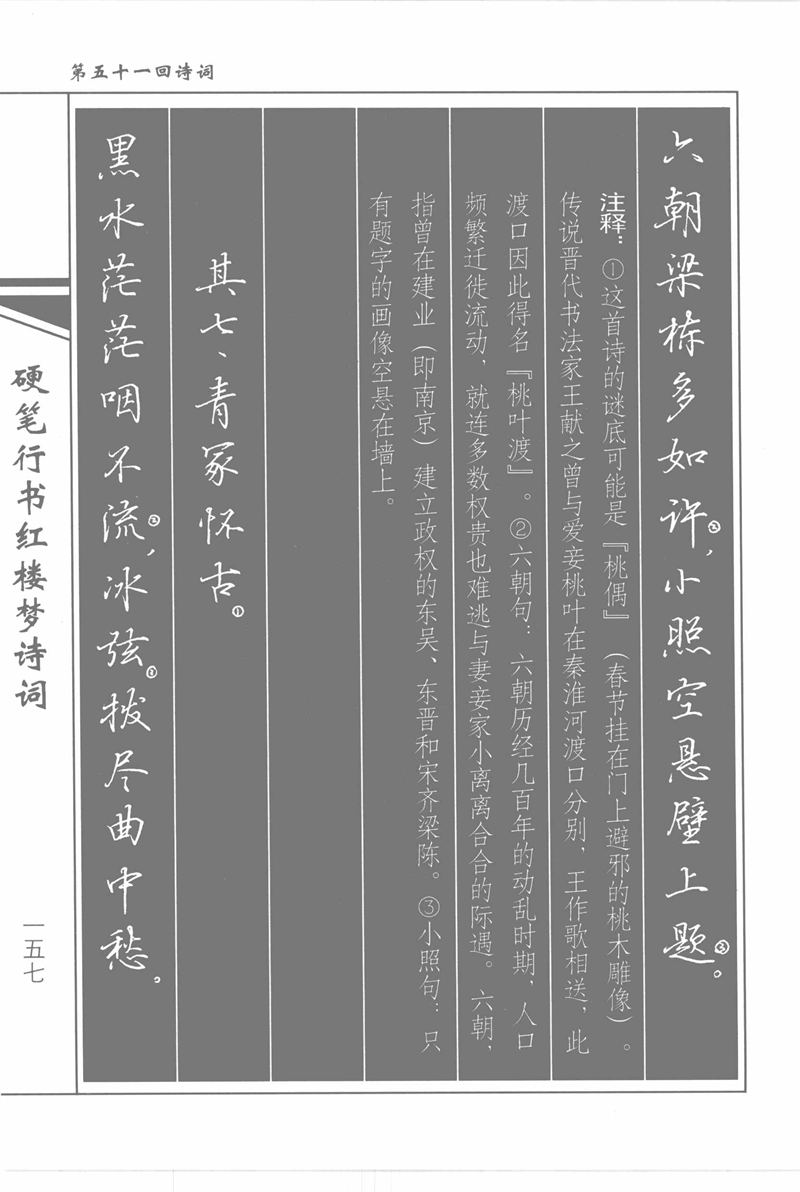 第五十一回诗词
六朝梁栋多如许②，小照空悬壁上题③。
注释：①这首诗的谜底可能是『桃偶』（春节挂在门上避邪的桃木雕像）。
传说晋代书法家王献之曾与爱妾桃叶在秦淮河渡口分别，王作歌相送，此
渡口因此得名『桃叶渡』。②六朝句：六朝历经几百年的动乱时期，人口
频繁迁徙流动，就连多数权贵也难逃与妻妾家小离离合合的际遇。六朝，
指曾在建业（即南京）建立政权的东吴、东晋和宋齐梁陈。③小照句：只
有题字的画像空悬在墙上。
其七、青冢怀古①
黑水茫茫咽不流②，冰弦③拨尽曲中愁。
硬笔行书红楼梦诗词
一五七